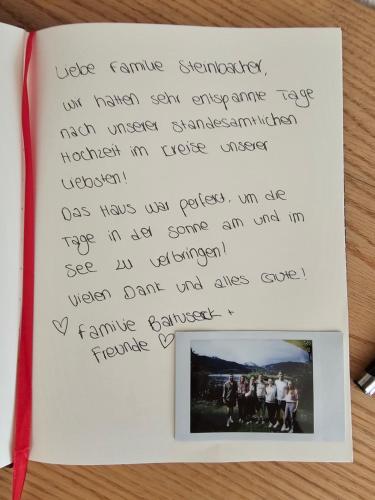 Liebe Familie Steinbacher,
wir hatten sehr entspannte Tage
nach unserer standesamtlichen
Hochzeit im Kreise unserer
Liebsten!
Das Haus war perfekt, um die
Tage in der Sonne am und im
See zu verbringen!
Vielen Dank und alles Gute!
♡ Familie Bartuseck +
Freunde ♡